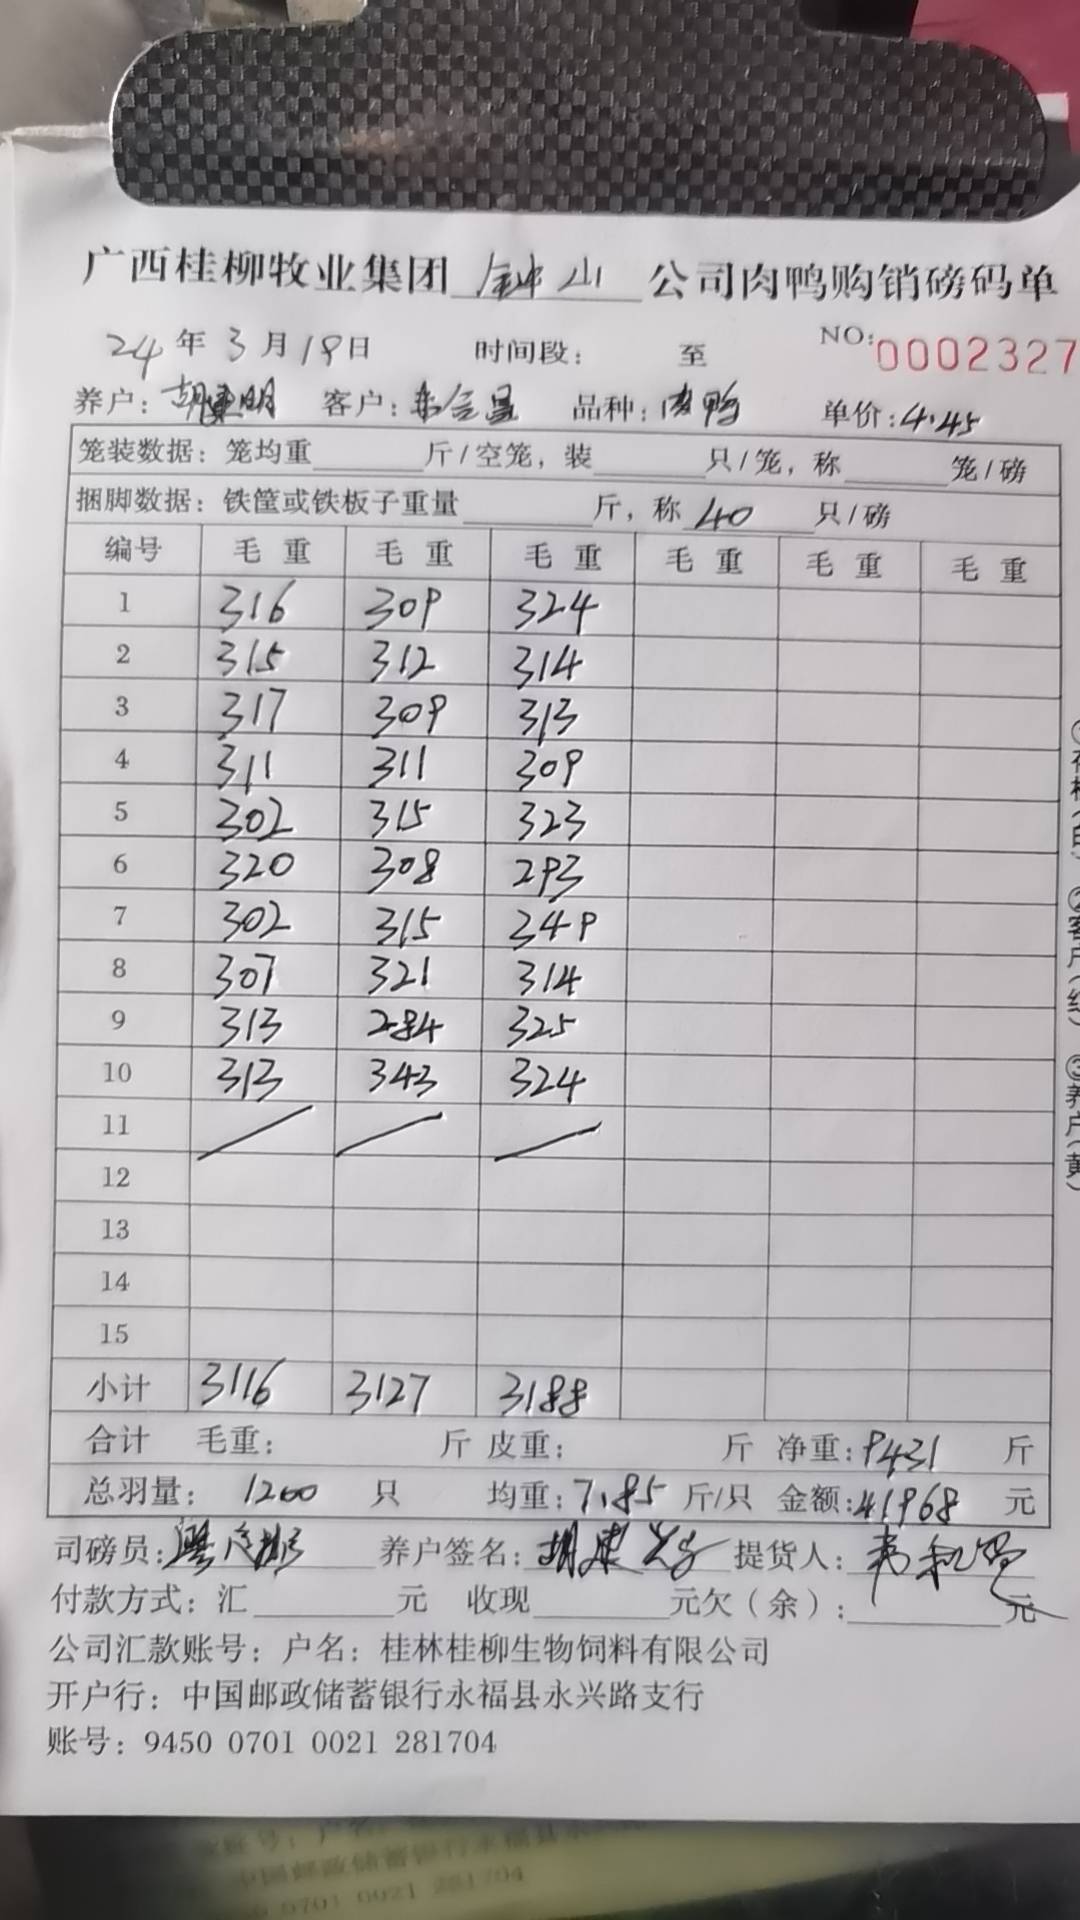 广西桂柳牧业集团 钟山 公司肉鸭购销磅码单
24年3月19日 时间段: 至 NO:0002327
养户: 胡建明 客户: 品种: 肉鸭 单价:4.45
笼装数据: 笼均重 斤/空笼, 装 只/笼, 称 笼/磅
捆脚数据: 铁筐或铁板子重量 斤, 称 40 只/磅
编号 毛重 毛重 毛重 毛重 毛重 毛重
1 316 309 324
2 315 312 314
3 317 309 313
4 311 311 309
5 302 315 323
6 320 308 293
7 302 315 349
8 307 321 314
9 313 284 325
10 313 343 324
11
12
13
14
15
小计 3116 3127 3188
合计 毛重: 斤 皮重: 斤 净重:9431 斤
总羽量: 1200 只 均重:7.85 斤/只 金额:41968 元
司磅员: 养户签名: 胡 提货人: 韦
付款方式: 汇 元 收现 元欠(余): 元
公司汇款账号: 户名: 桂林桂柳生物饲料有限公司
开户行: 中国邮政储蓄银行永福县永兴路支行
账号: 9450 0701 0021 281704
②客户(红) ③养户(黄)
中国邮政储蓄银行永福县永
0701 0021 281704